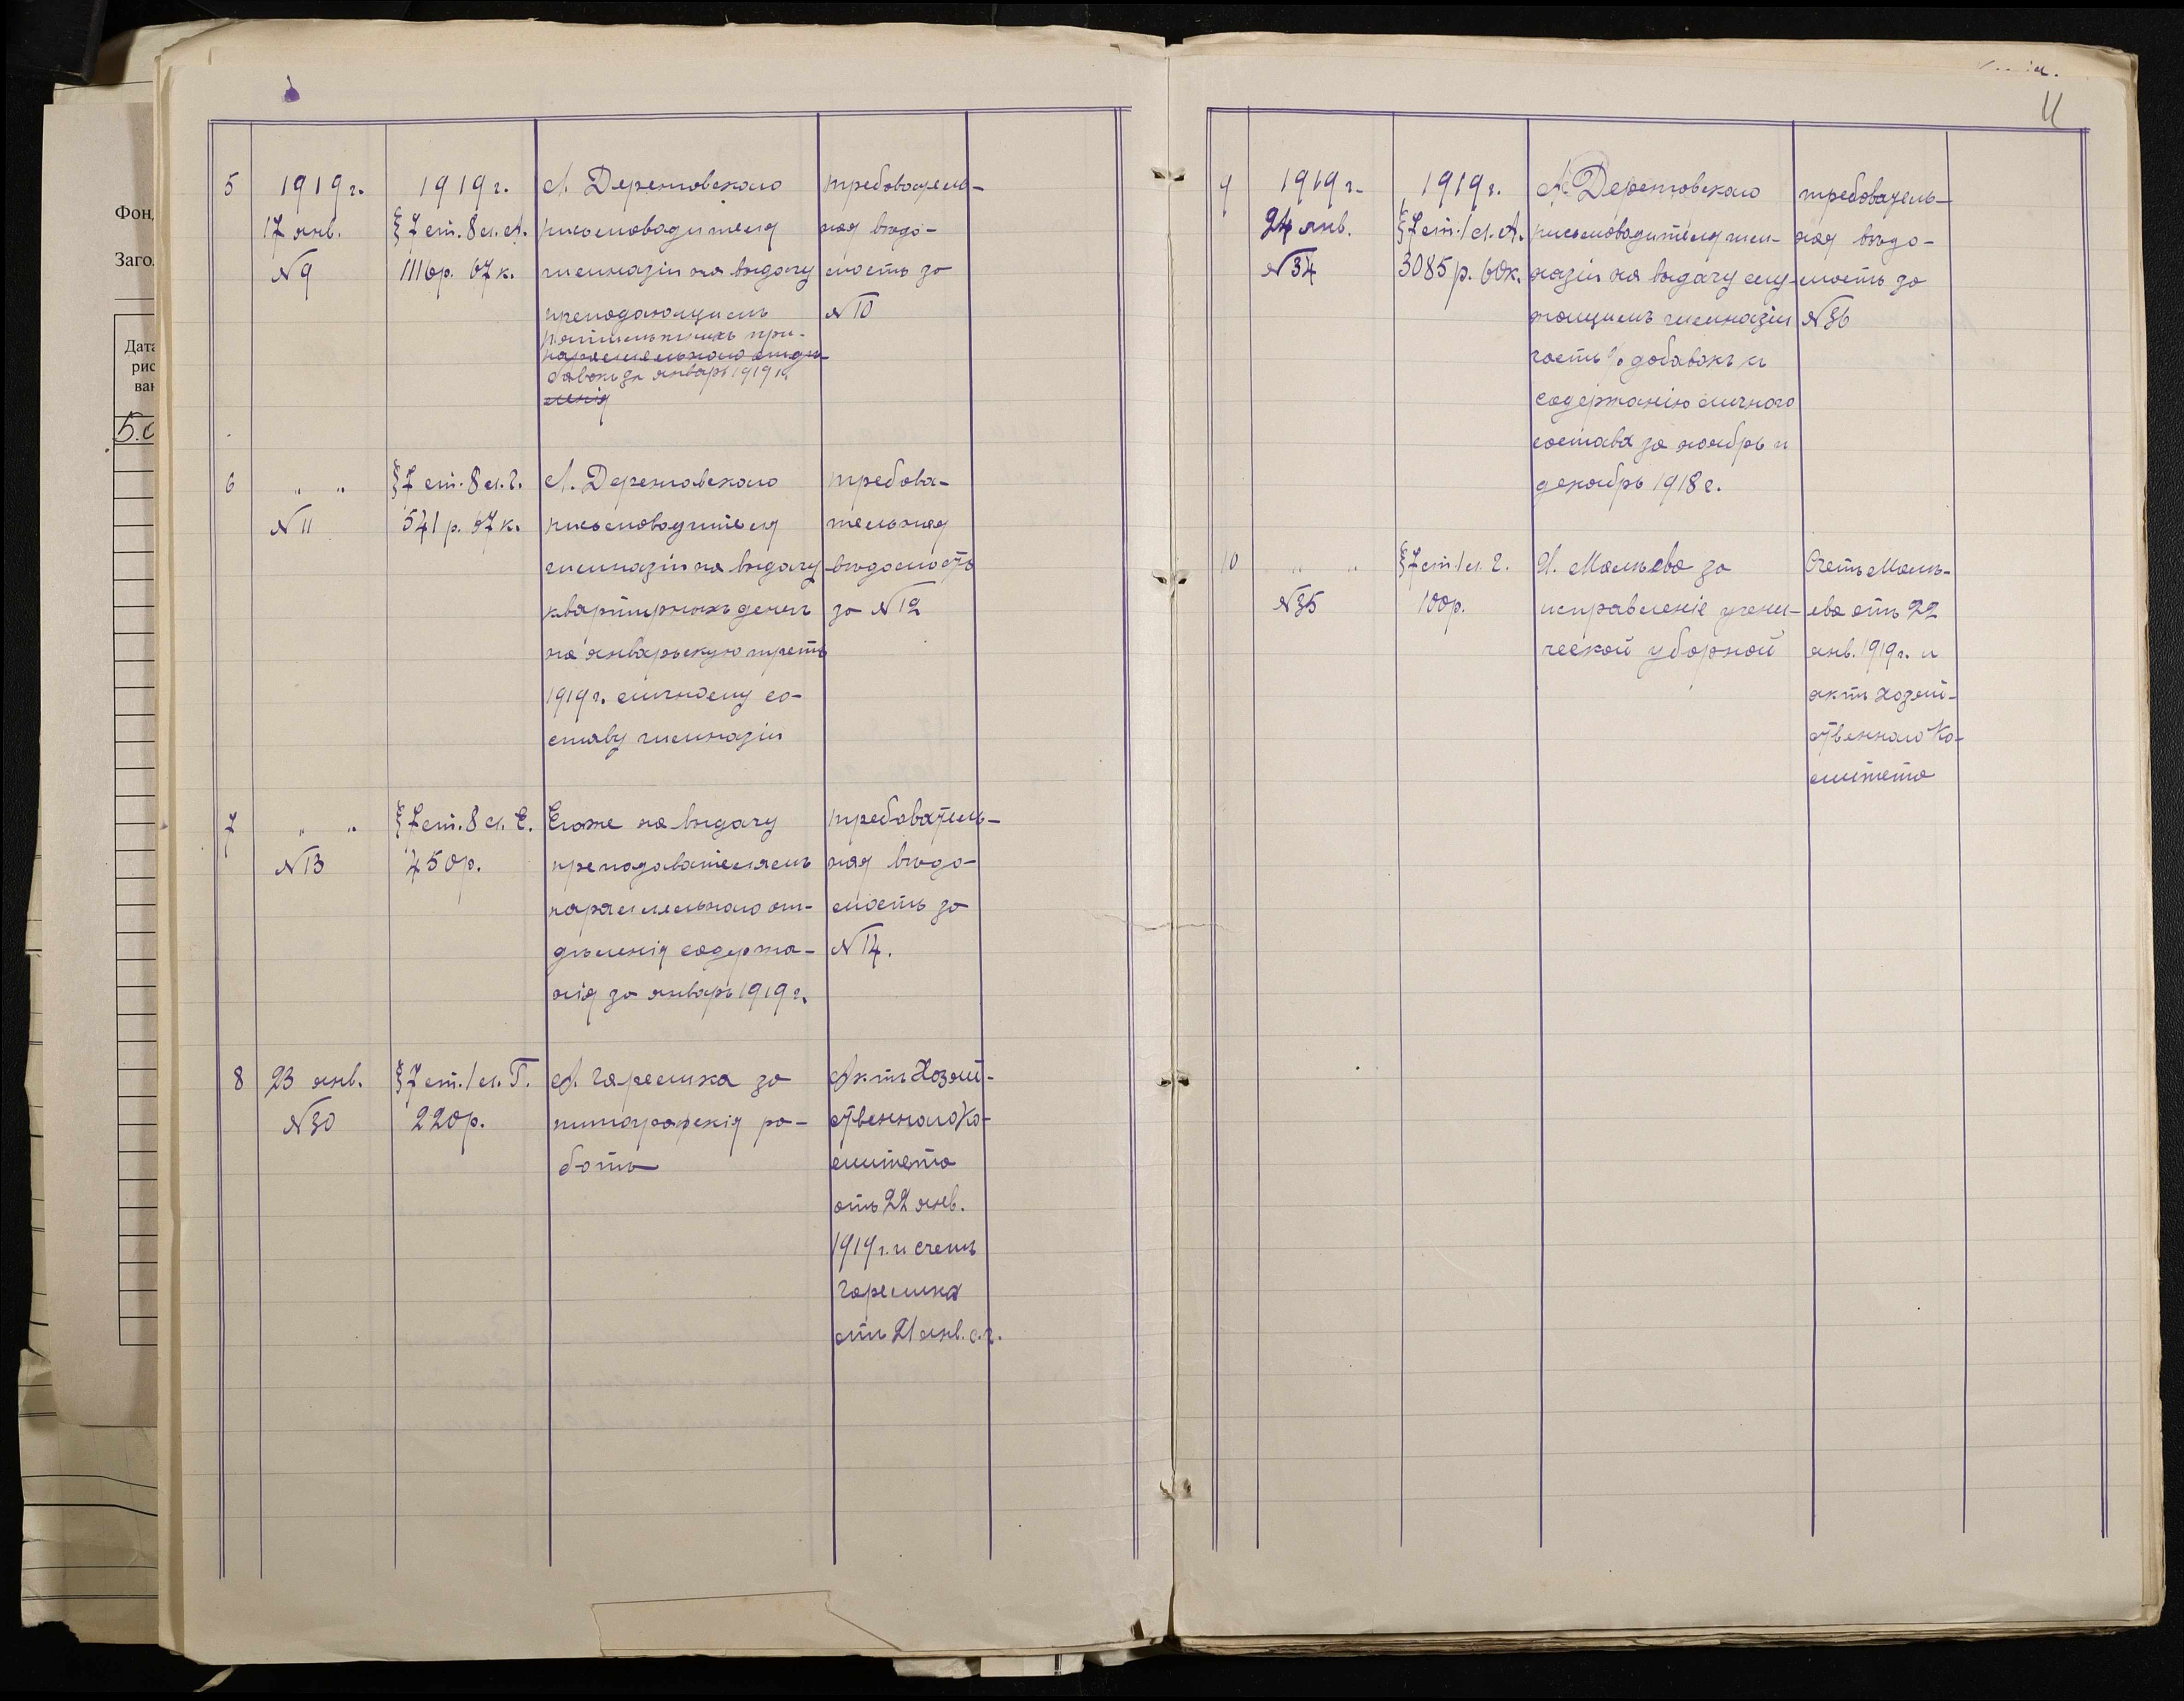 Фон
Заго
Дата
рис
ван
5.0
5
1919 г.
17 янв.
№ 9
1919 г.
§ 7 ст. 8 л. А.
1116 р. 67 к.
А. Деретовскаго
письмоводителя
гимназіи на выдачу
преподающимъ
при-
параллельнаго отдѣ-
бавокъ за январь 1919 г.
ленія
требователь-
ная вѣдо-
мость за
№ 10
6
" "
№ 11
§ 7 ст. 8 л. г.
541 р. 67 к.
А. Деретовскаго
письмоводителя
гимназіи на выдачу
квартирныхъ денегъ
на январьскую треть
1919 г. личному со-
ставу гимназіи
требова-
тельная
вѣдомость
за № 12
7
" "
№ 13
§ 7 ст. 8 л. Е.
450 р.
Егоже на выдачу
преподавателямъ
параллельнаго от-
дѣленія содержа-
нія за январь 1919 г.
требователь-
ная вѣдо-
мость за
№ 14.
8
23 янв.
№ 30
§ 7 ст. 1 л. Г.
220 р.
А. Гарелика за
типографскія ра-
боты
Актъ Хозяй-
ственнаго Ко-
митета
отъ 22 янв.
1919 г. и счетъ
Гарелика
отъ 21 янв. с. г.
11
9
1919 г.
24 янв.
№ 34
1919 г.
§ 7 ст. 1 л. А.
3085 р. 60 к.
А. Деретовскаго
письмоводителя гим-
назіи на выдачу слу-
жащимъ гимназіи
часть % добавокъ къ
содержанію личнаго
состава за ноябрь и
декабрь 1918 г.
требователь-
ная вѣдо-
мость за
№ 36
10
" "
№ 35
§ 7 ст. 1 л. г.
100 р.
И. Мальева за
исправленіе учени-
ческой уборной
Счетъ Маль-
ева отъ 22
янв. 1919 г. и
актъ Хозяй-
ственнаго Ко-
митета